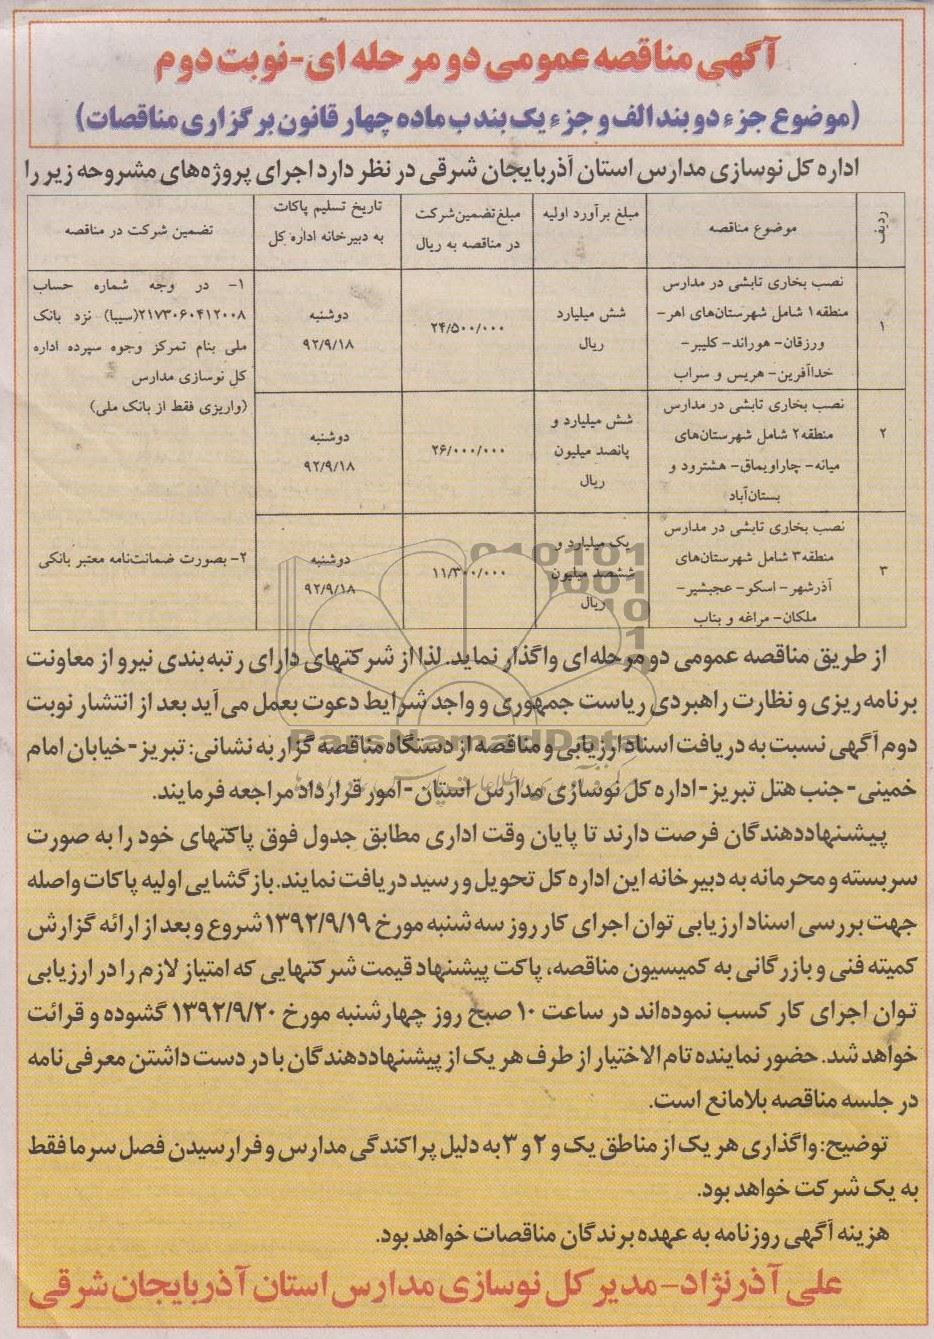 آگهی مناقصه عمومی دو مرحله ای-نوبت دوم
(موضوع جزء دو بند الف و جزء یک بند ب ماده چهار قانون برگزاری مناقصات)
اداره کل نوسازی مدارس استان آذربایجان شرقی در نظر دارد اجرای پروژه‌های مشروحه زیر را
ردیف
موضوع مناقصه
مبلغ برآورد اولیه
مبلغ تضمین شرکت
در مناقصه به ریال
تاریخ تسلیم پاکات
به دبیرخانه اداره کل
تضمین شرکت در مناقصه
۱
نصب بخاری تابشی در مدارس
منطقه۱ شامل شهرستان‌های اهر-
ورزقان- هوراند- کلیبر-
خداآفرین- هریس و سراب
شش میلیارد
ریال
۲۴/۵۰۰/۰۰۰
دوشنبه
۹۲/۹/۱۸
۱- در وجه شماره حساب
۲۱۷۳۰۶۰۴۱۲۰۰۸(سیبا) نزد بانک
ملی بنام تمرکز وجوه سپرده اداره
کل نوسازی مدارس
(واریزی فقط از بانک ملی)
۲
نصب بخاری تابشی در مدارس
منطقه۲ شامل شهرستان‌های
میانه- چاراویماق- هشترود و
بستان‌آباد
شش میلیارد و
پانصد میلیون
ریال
۲۶/۰۰۰/۰۰۰
دوشنبه
۹۲/۹/۱۸
۳
نصب بخاری تابشی در مدارس
منطقه۳ شامل شهرستان‌های
آذرشهر- اسکو- عجبشیر-
ملکان- مراغه و بناب
یک میلیارد و
ششصد میلیون
ریال
۱۱/۳۰۰/۰۰۰
دوشنبه
۹۲/۹/۱۸
۲- بصورت ضمانت‌نامه معتبر بانکی
از طریق مناقصه عمومی دو مرحله‌ای واگذار نماید. لذا از شرکتهای دارای رتبه‌بندی نیرو از معاونت
برنامه‌ریزی و نظارت راهبردی ریاست جمهوری و واجد شرایط دعوت بعمل می‌آید بعد از انتشار نوبت
دوم آگهی نسبت به دریافت اسناد ارزیابی و مناقصه از دستگاه مناقصه‌گزار به نشانی: تبریز-خیابان امام
خمینی- جنب هتل تبریز- اداره کل نوسازی مدارس استان- امور قرارداد مراجعه فرمایند.
پیشنهاددهندگان فرصت دارند تا پایان وقت اداری مطابق جدول فوق پاکتهای خود را به صورت
سربسته و محرمانه به دبیرخانه این اداره کل تحویل و رسید دریافت نمایند. بازگشایی اولیه پاکات واصله
جهت بررسی اسناد ارزیابی توان اجرای کار روز سه شنبه مورخ ۱۳۹۲/۹/۱۹ شروع و بعد از ارائه گزارش
کمیته فنی و بازرگانی به کمیسیون مناقصه، پاکت پیشنهاد قیمت شرکتهایی که امتیاز لازم را در ارزیابی
توان اجرای کار کسب نموده‌اند در ساعت ۱۰ صبح روز چهارشنبه مورخ ۱۳۹۲/۹/۲۰ گشوده و قرائت
خواهد شد. حضور نماینده تام‌الاختیار از طرف هر یک از پیشنهاددهندگان با در دست داشتن معرفی‌نامه
در جلسه مناقصه بلامانع است.
توضیح: واگذاری هر یک از مناطق یک و ۲ و ۳ به دلیل پراکندگی مدارس و فرارسیدن فصل سرما فقط
به یک شرکت خواهد بود.
هزینه آگهی روزنامه به عهده برندگان مناقصات خواهد بود.
علی آذرنژاد-مدیر کل نوسازی مدارس استان آذربایجان شرقی
ParsNamadData